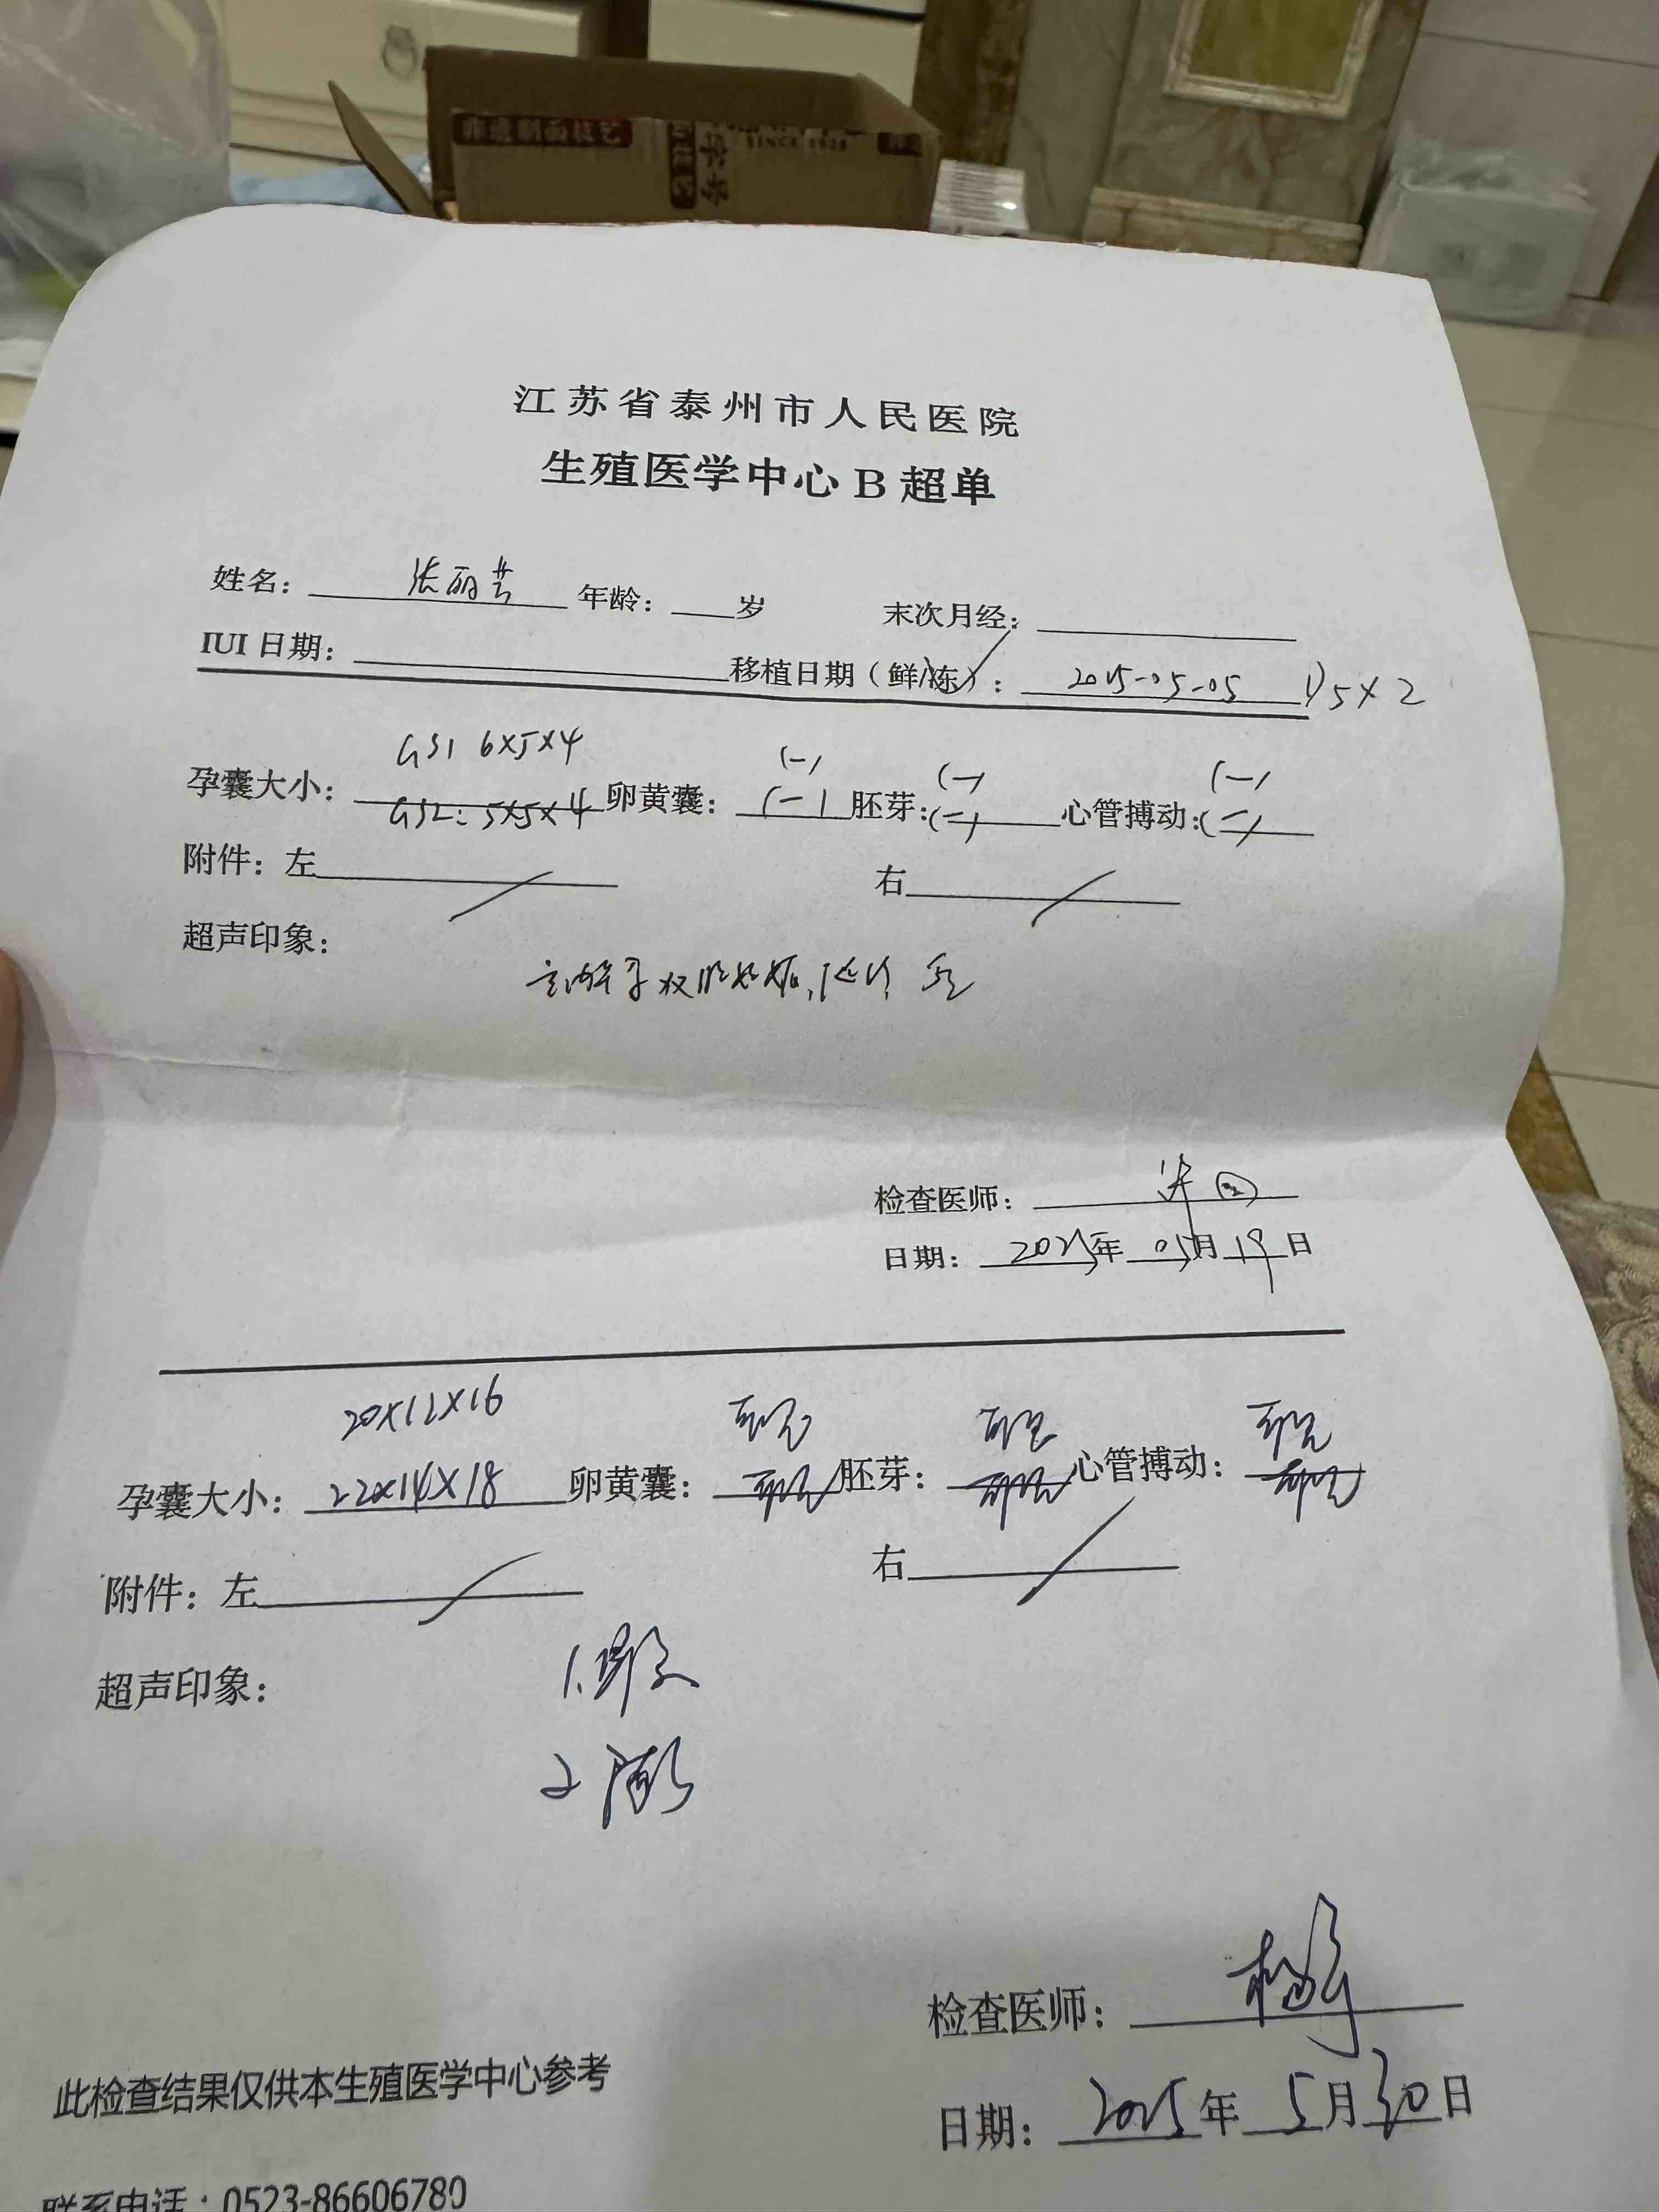 非遗制面技艺
SINCE 1928
江苏省泰州市人民医院
生殖医学中心 B 超单
姓名： 张丽芸 年龄： 岁 末次月经：
IUI 日期： 移植日期（鲜/冻）： 2025-05-05 D5×2
GS1 6×5×4 (-) (-) (-)
孕囊大小： GS2: 5×5×4 卵黄囊： (-) 胚芽: (-) 心管搏动: (-)
附件：左 右
超声印象：
检查医师：
日期： 2025年 05月 19日
20×12×16 可见 可见 可见
孕囊大小： 22×14×18 卵黄囊： 可见 胚芽： 可见 心管搏动： 可见
附件：左 右
超声印象：
1.
2
检查医师：
日期： 2025年 5月 30日
此检查结果仅供本生殖医学中心参考
联系电话：0523-86606780